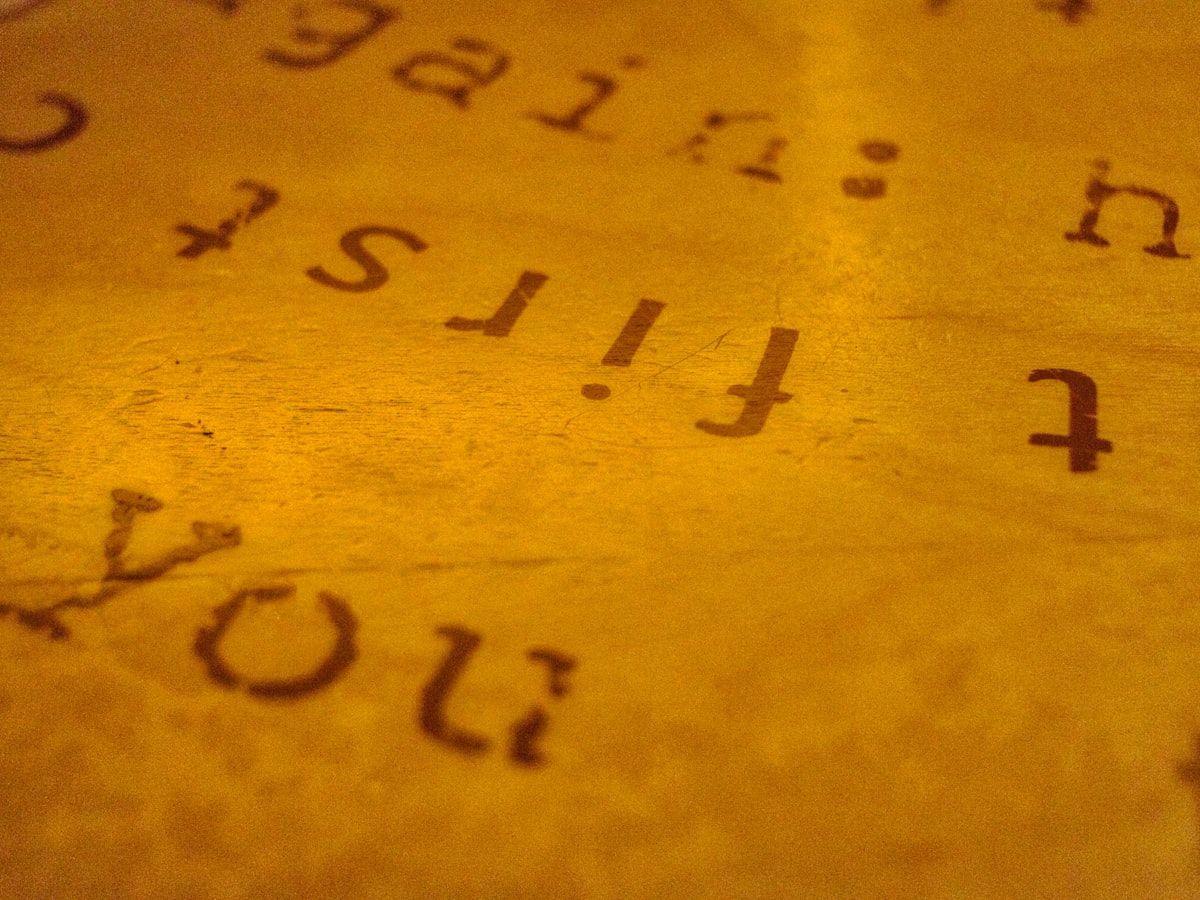 again: n
t first
you